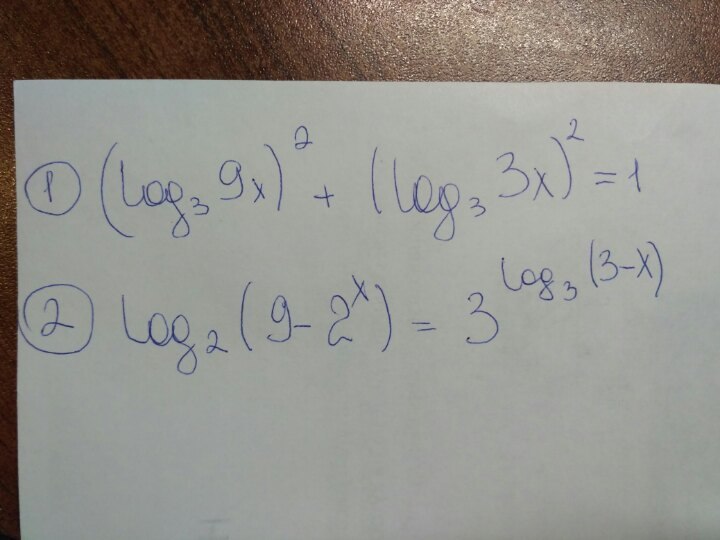 ① (log₃ 9x)² + (log₃ 3x)² = 1
② log₂ (9 - 2ˣ) = 3^(log₃ (3-x))